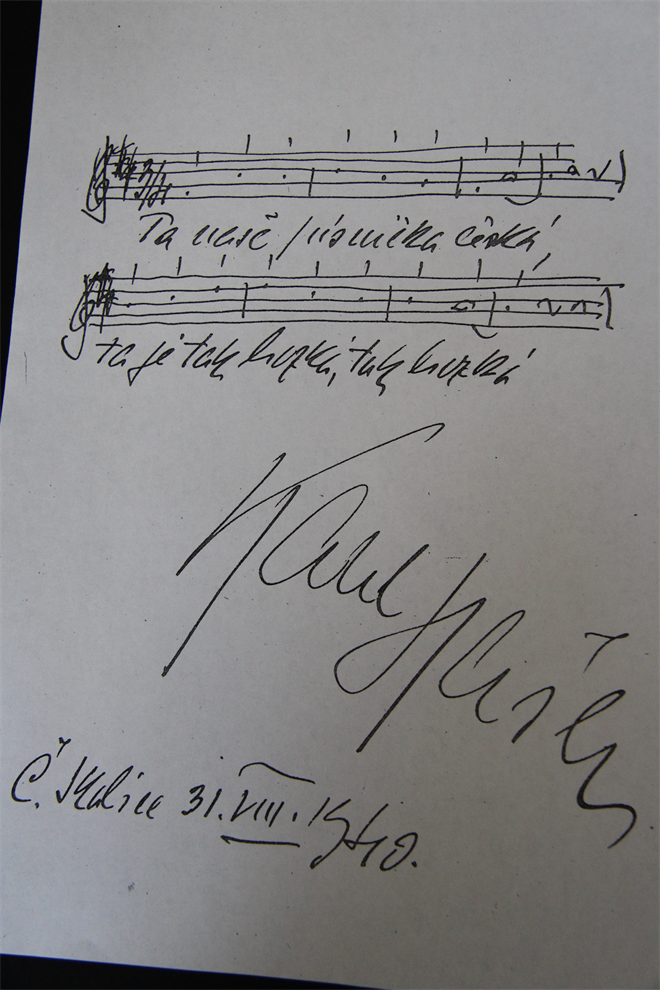 Ta naše písnička česká,
ta je tak hezká, tak hezká
Karel Hašler
Č. Skalice 31. VIII. 1940.